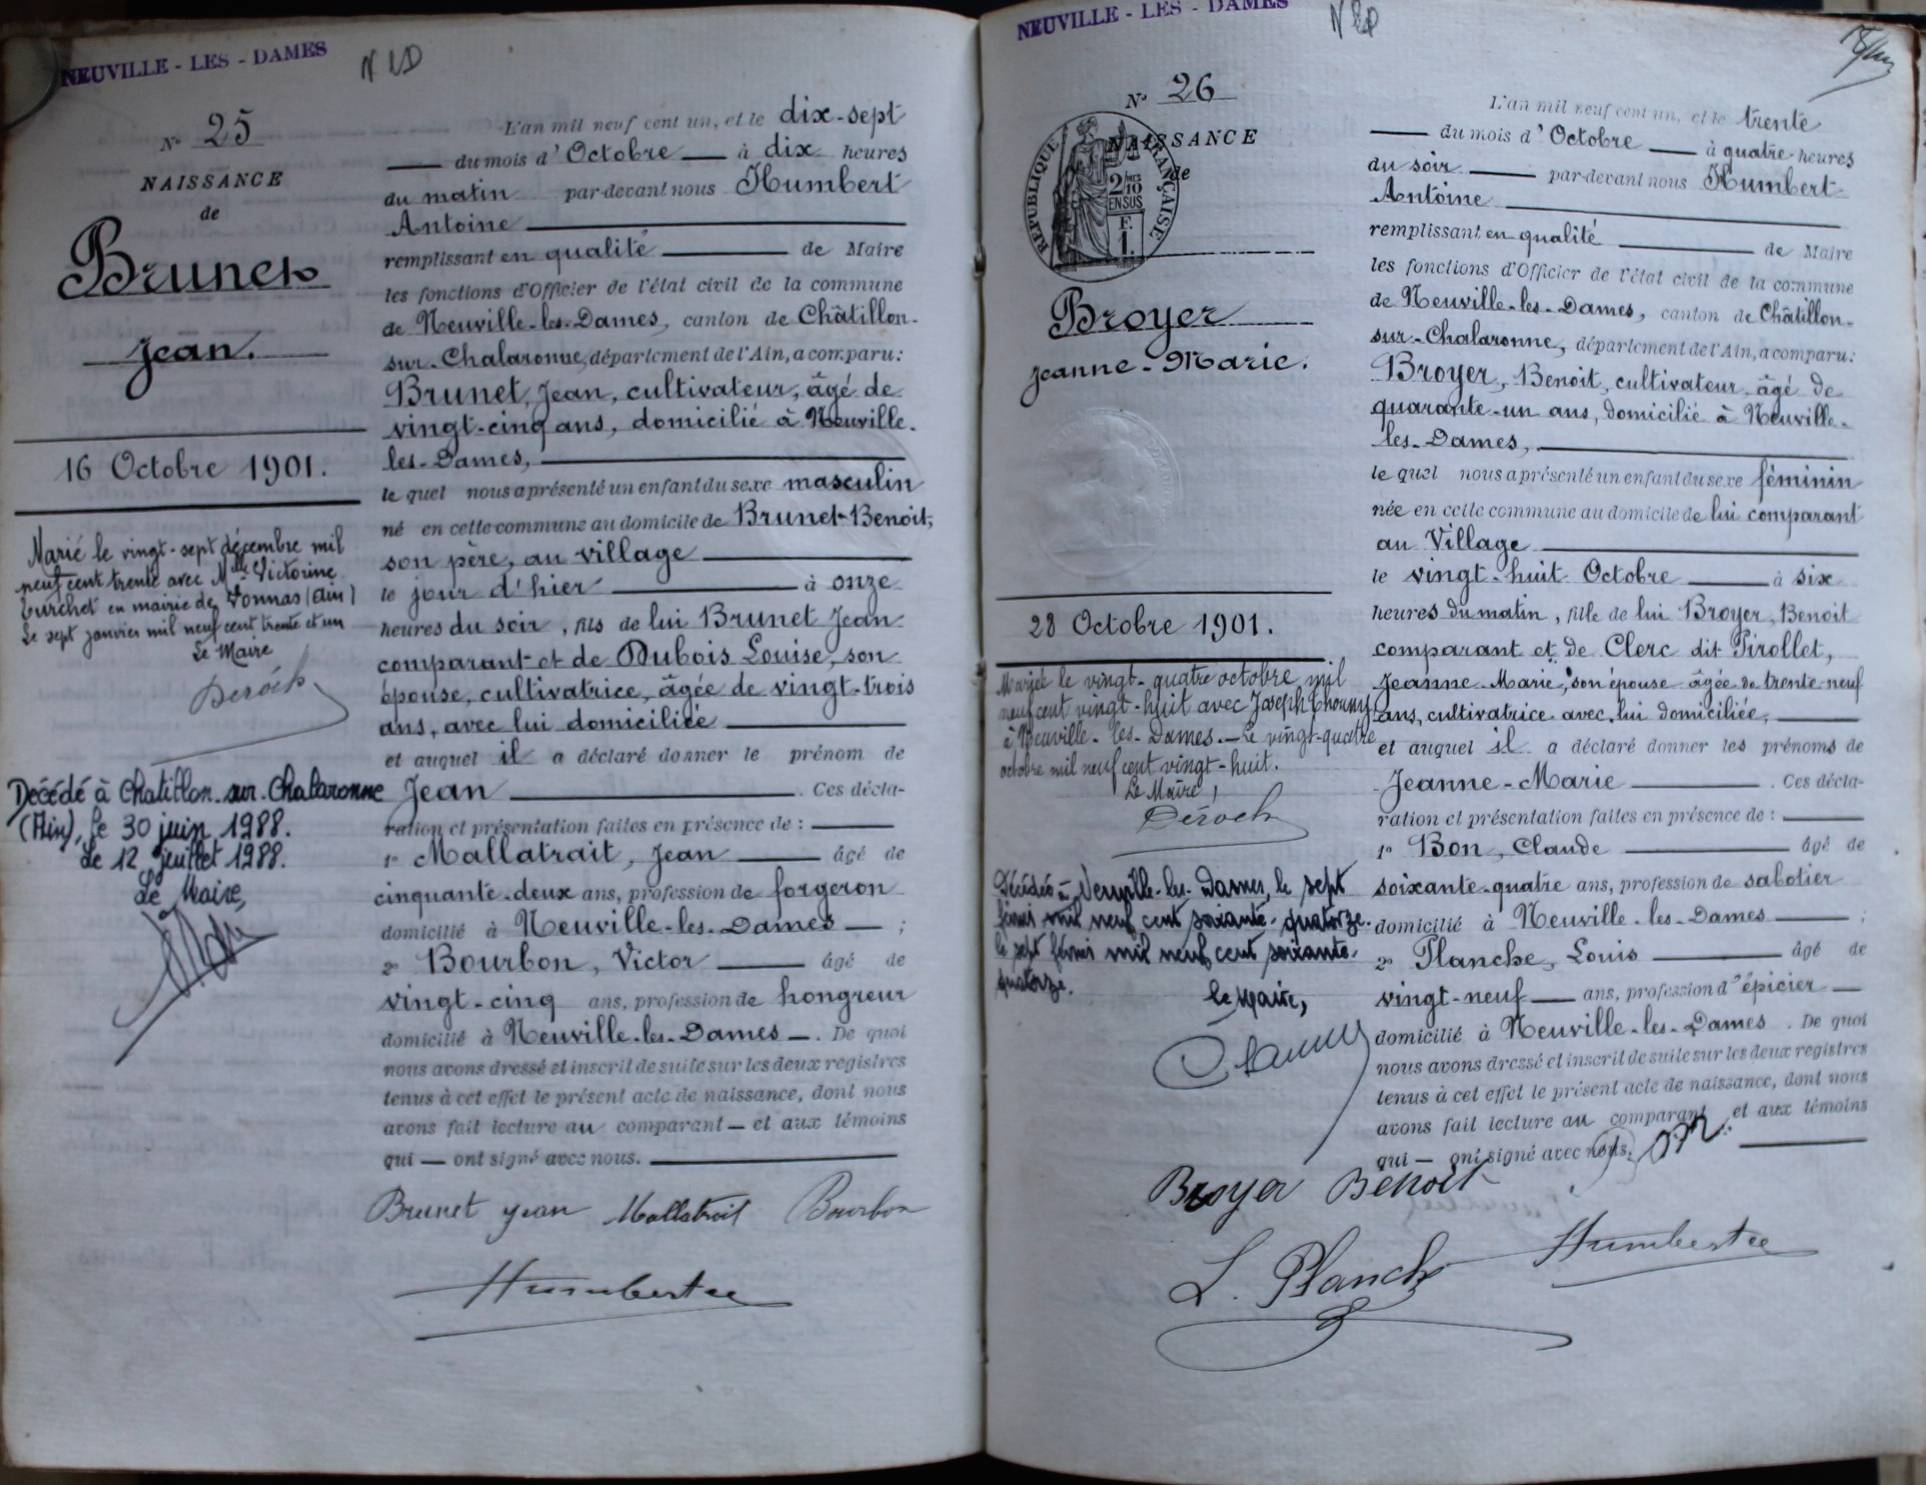 NEUVILLE - LES - DAMES
N LD
N° 25
NAISSANCE
de
Brunet
Jean.
16 Octobre 1901.
Marié le vingt-sept décembre mil
neuf cent trente avec Mlle Victorine
en mairie de Vonnas (Ain)
Le sept janvier mil neuf cent trente et un
Le Maire
Déroch
Décédé à Chatillon-sur-Chalaronne
(Ain), le 30 juin 1988.
Le 12 juillet 1988.
Le Maire,
L'an mil neuf cent un, et le dix-sept
du mois d'Octobre à dix heures
du matin par-devant nous Humbert
Antoine
remplissant en qualité de Maire
les fonctions d'Officier de l'état civil de la commune
de Neuville-les-Dames, canton de Châtillon-
sur-Chalaronne, département de l'Ain, a comparu:
Brunet, Jean, cultivateur, âgé de
vingt-cinq ans, domicilié à Neuville-
les-Dames,
le quel nous a présenté un enfant du sexe masculin
né en cette commune au domicile de Brunet Benoit,
son père, au village
le jour d'hier à onze
heures du soir, fils de lui Brunet Jean
comparant et de Dubois Louise, son
épouse, cultivatrice, âgée de vingt-trois
ans, avec lui domiciliée
et auquel il a déclaré donner le prénom de
Jean . Ces décla-
ration et présentation faites en présence de :
1° Mallatrait, Jean âgé de
cinquante-deux ans, profession de forgeron
domicilié à Neuville-les-Dames ;
2° Bourbon, Victor âgé de
vingt-cinq ans, profession de hongreur
domicilié à Neuville-les-Dames . De quoi
nous avons dressé et inscrit de suite sur les deux registres
tenus à cet effet le présent acte de naissance, dont nous
avons fait lecture au comparant et aux témoins
qui ont signé avec nous.
Brunet Jean Mallatrait Bourbon
Humbert
NEUVILLE - LES - DAMES
N LD
N° 26
NAISSANCE
de
REPUBLIQUE FRANÇAISE
2/10
EN SUS
F.
1.
Broyer
Jeanne-Marie.
28 Octobre 1901.
Mariée le vingt-quatre octobre mil
neuf cent vingt-huit avec Joseph
à Neuville-les-Dames. Le vingt-quatre
octobre mil neuf cent vingt-huit.
Le Maire,
Déroch
Décédée à Neuville-les-Dames, le sept
février mil neuf cent soixante-quatorze.
le sept février mil neuf cent soixante-
quatorze.
le Maire,
L'an mil neuf cent un, et le trente
du mois d'Octobre à quatre heures
du soir par-devant nous Humbert
Antoine
remplissant en qualité de Maire
les fonctions d'Officier de l'état civil de la commune
de Neuville-les-Dames, canton de Châtillon-
sur-Chalaronne, département de l'Ain, a comparu:
Broyer, Benoit, cultivateur, âgé de
quarante-un ans, domicilié à Neuville-
les-Dames,
le quel nous a présenté un enfant du sexe féminin
née en cette commune au domicile de lui comparant
au Village
le vingt-huit Octobre à six
heures du matin, fille de lui Broyer, Benoit
comparant et de Clerc dit Pirollet,
Jeanne-Marie, son épouse âgée de trente-neuf
ans, cultivatrice avec lui domiciliée,
et auquel il a déclaré donner les prénoms de
Jeanne-Marie . Ces décla-
ration et présentation faites en présence de :
1° Bon, Claude âgé de
soixante-quatre ans, profession de sabotier
domicilié à Neuville-les-Dames ;
2° Planche, Louis âgé de
vingt-neuf ans, profession d'épicier
domicilié à Neuville-les-Dames . De quoi
nous avons dressé et inscrit de suite sur les deux registres
tenus à cet effet le présent acte de naissance, dont nous
avons fait lecture au comparant et aux témoins
qui ont signé avec nous.
Broyer Benoit
L. Planche Humbert